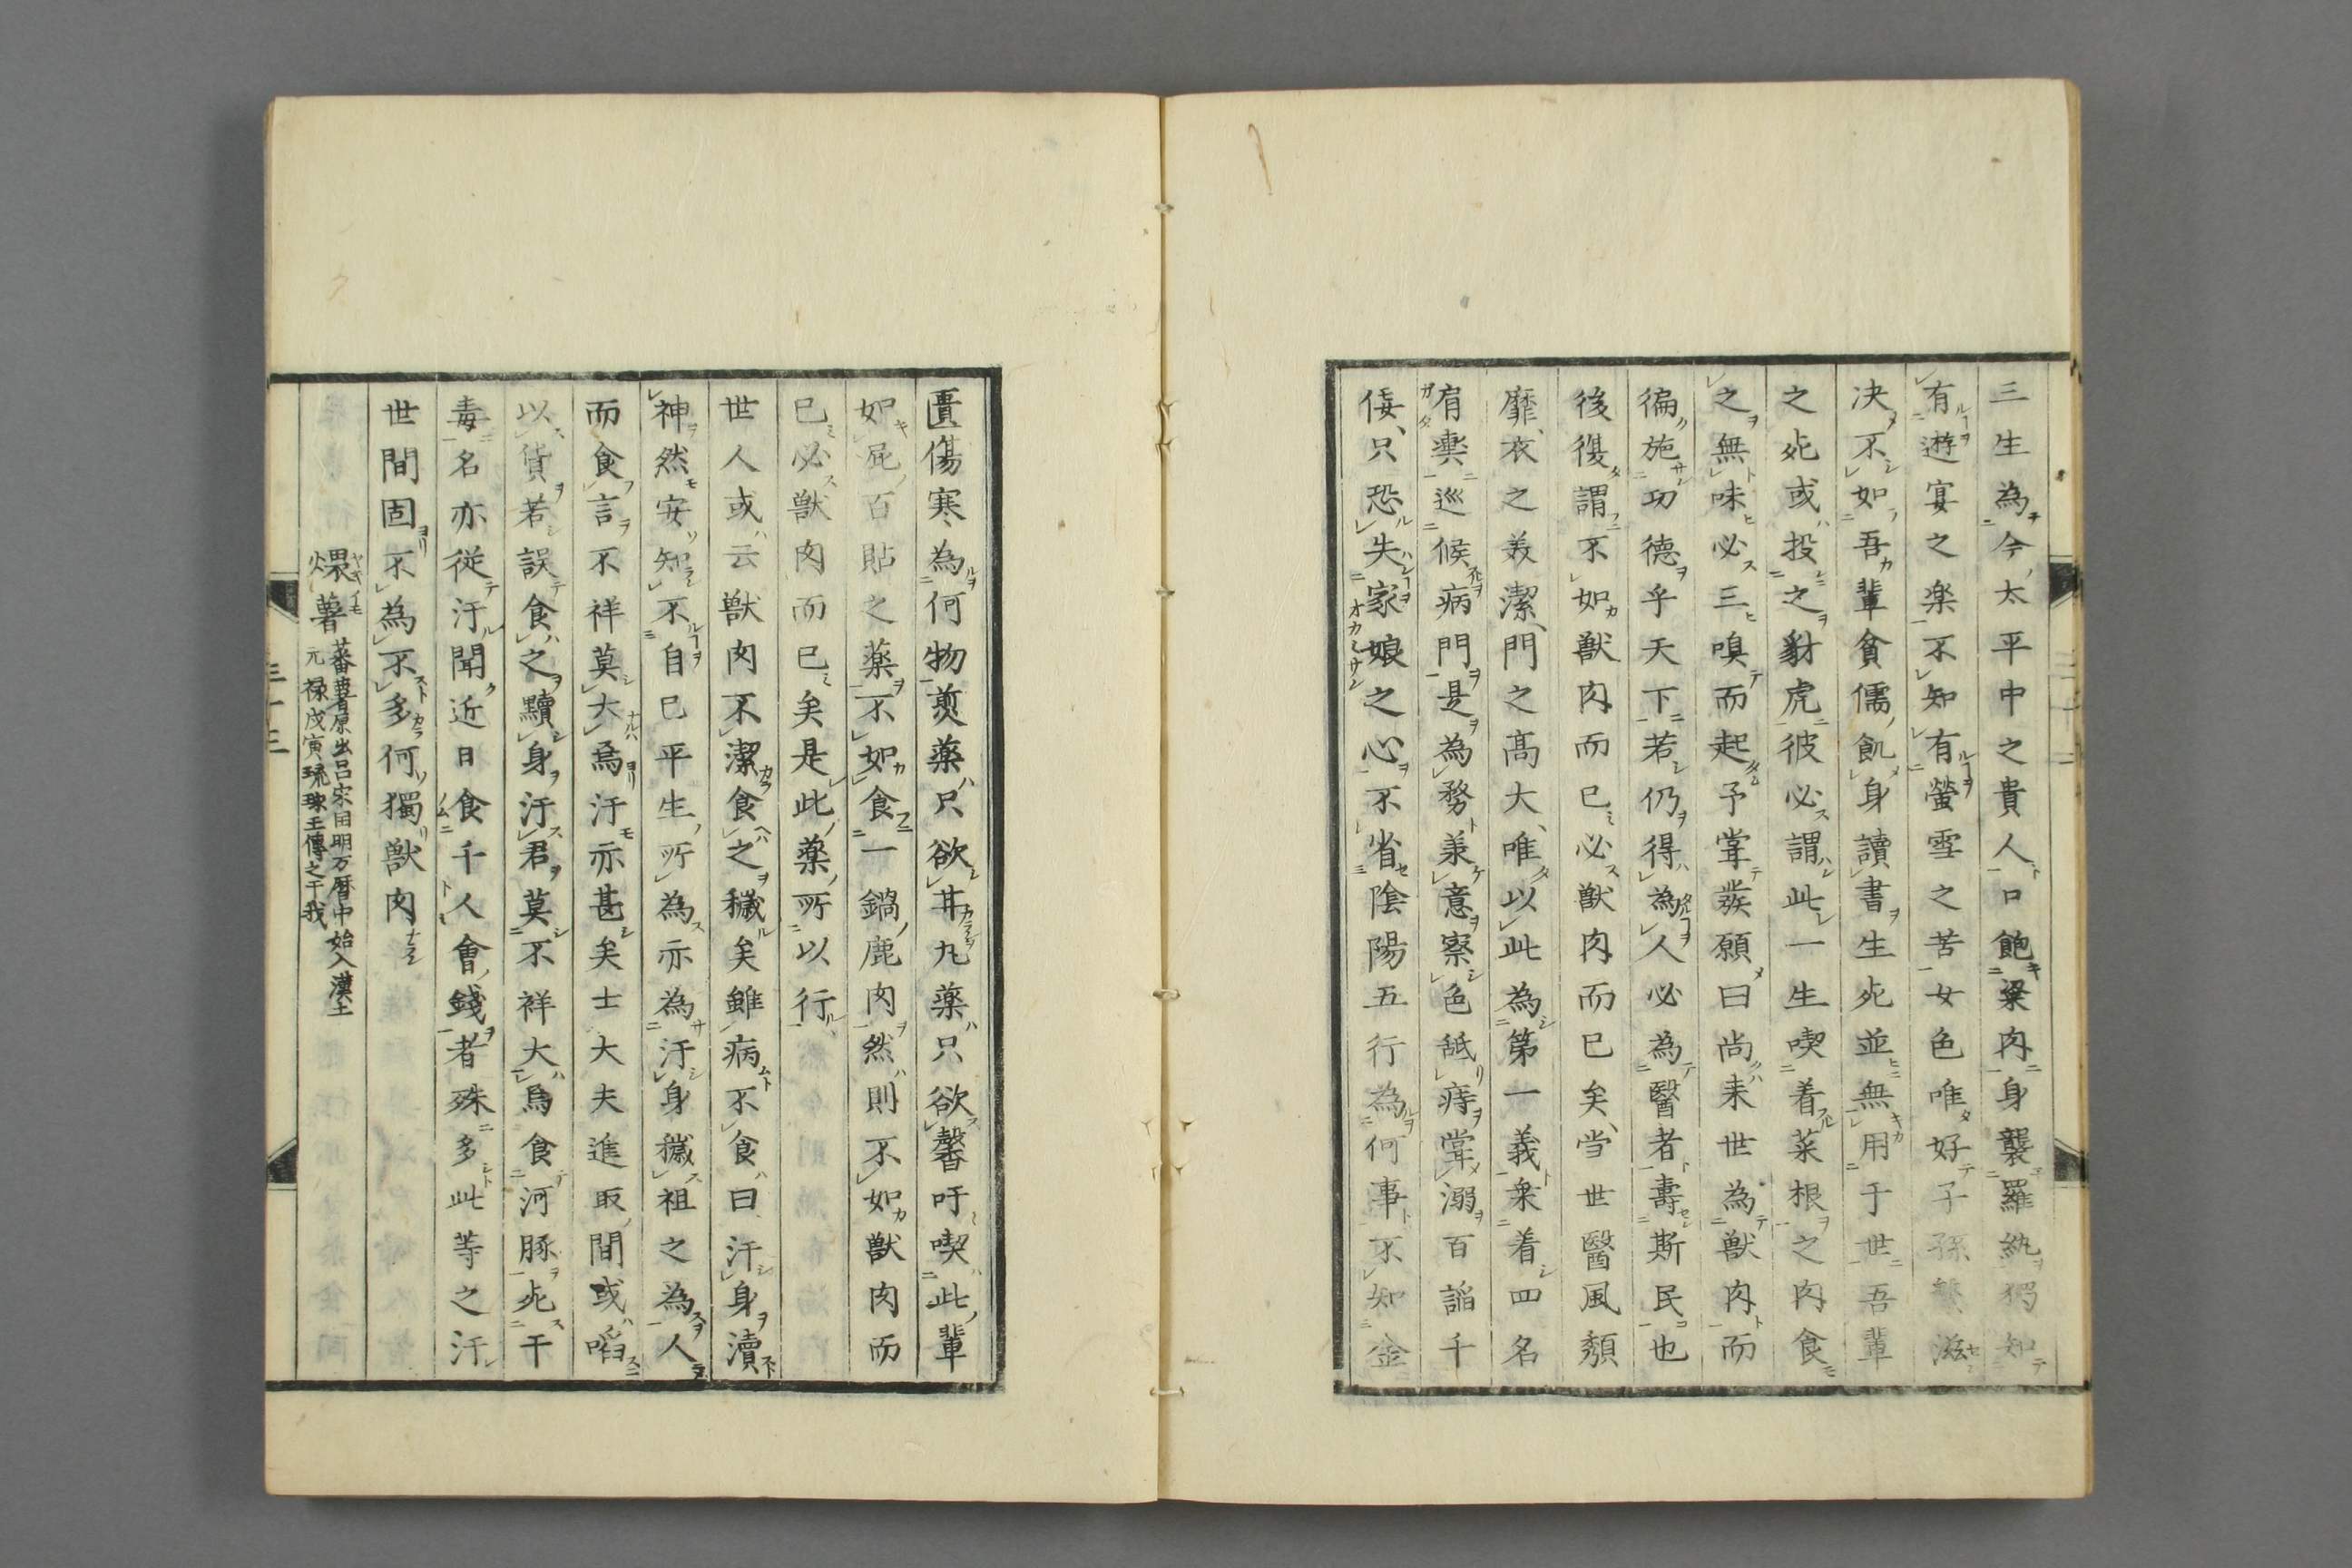 三生為今太平中之貴人口飽粱肉身襲羅紈獨知
有遊宴之楽不知有螢雪之苦女色唯好子孫繁滋
決不如吾輩貧儒飢身讀書生死並無用于世吾輩
之死或投之豺虎彼必謂此一生喫着菜根之肉食
之無味必三嗅而起予嘗發願曰尚来世為獣肉而
徧施功德乎天下若仍得為人必為醫者壽斯民也
後復謂不如獣肉而已必獣肉而已矣当世醫風頽
靡、衣之美潔、門之高大、唯以此為第一義衆着四名
肩輿巡候病門是為務兼意察色舐痔嘗溺百謟千
倿、只恐失家娘之心不省陰陽五行為何事不知金
匱傷寒為何物煎薬只欲甘丸薬只欲馨吁喫此輩
如屁百貼之薬不如食一鍋鹿肉然則不如獣肉而
已必獣肉而已矣是此薬所以行
世人或云獣肉不潔食之穢矣雖病不食曰汙身瀆
神然安知不自已平生所為亦為汙身穢祖之為人
而食言不祥莫大焉汙亦甚矣士大夫進取間或啗
以貨若誤食之黷身汙君莫不祥大焉食河豚死于
毒名亦從汙聞近日食千人會錢者殊多此等之汙
世間固不為不多何獨獣肉
煨薯 蕃薯原出呂宋国明万暦中始入漢土
元禄戊寅琉球王傳之于我
三十三